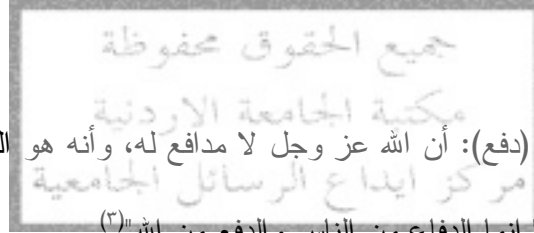 جميع الحقوق محفوظة
مكتبة الجامعة الاردنية
(دفع): أن الله عز وجل لا مدافع له، وأنه هو
مركز ايداع الرسائل الجامعية
الدفاع من الناس والدفع من الله"(٣)